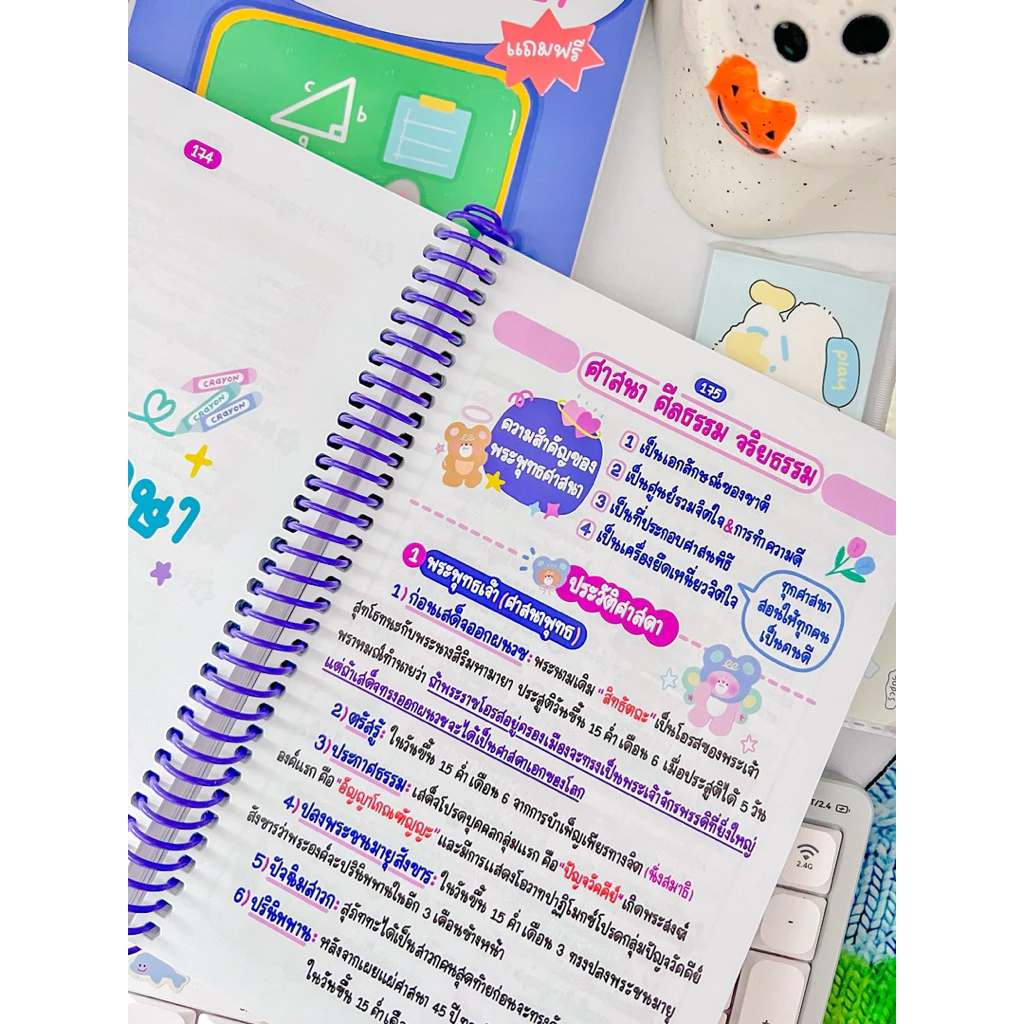 แถมฟรี
c
b
a
174
CRAYON
CRAYON
CRAYON
play
175
ศาสนา ศีลธรรม จริยธรรม
ความสำคัญของ
พระพุทธศาสนา
1 เป็นเอกลักษณ์ของชาติ
2 เป็นศูนย์รวมจิตใจ&การทำความดี
3 เป็นที่ประกอบศาสนพิธี
4 เป็นเครื่องยึดเหนี่ยวจิตใจ
ทุกศาสนา
สอนให้ทุกคน
เป็นคนดี
ประวัติศาสดา
1 พระพุทธเจ้า (ศาสนาพุทธ)
1) ก่อนเสด็จออกผนวช: พระนามเดิม "สิทธัตถะ" เป็นโอรสของพระเจ้า
สุทโธทนะกับพระนางสิริมหามายา ประสูติวันขึ้น 15 ค่ำ เดือน 6 เมื่อประสูติได้ 5 วัน
พราหมณ์ทำนายว่า ถ้าพระราชโอรสอยู่ครองเมืองจะทรงเป็นพระเจ้าจักรพรรดิที่ยิ่งใหญ่
แต่ถ้าเสด็จทรงออกผนวชจะได้เป็นศาสดาเอกของโลก
2) ตรัสรู้: ในวันขึ้น 15 ค่ำ เดือน 6 จากการบำเพ็ญเพียรทางจิต (นั่งสมาธิ)
3) ประกาศธรรม: เสด็จโปรดบุคคลกลุ่มแรก คือ "ปัญจวัคคีย์" เกิดพระสงฆ์
องค์แรก คือ "อัญญาโกณฑัญญะ" และมีการแสดงโอวาทปาฏิโมกข์โปรดกลุ่มปัญจวัคคีย์
4) ปลงพระชนมายุสังขาร: ในวันขึ้น 15 ค่ำ เดือน 3 ทรงปลงพระชนมายุ
สังขารว่าพระองค์จะปรินิพพานในอีก 3 เดือนข้างหน้า
5) ปัจฉิมสาวก: สุภัททะได้เป็นสาวกคนสุดท้ายก่อนจะทรง
6) ปรินิพพาน: หลังจากเผยแผ่ศาสนา 45 ปี
ในวันขึ้น 15 ค่ำ
2.4G
-